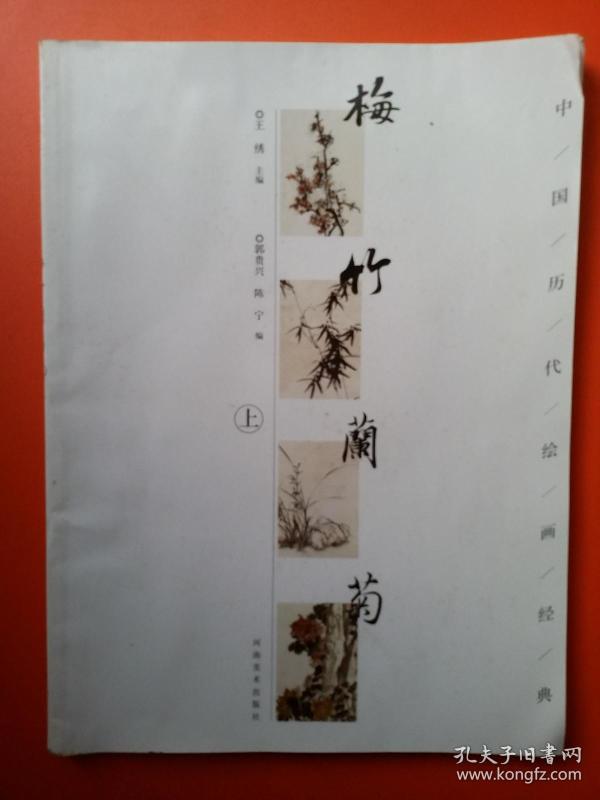 中/国/历/代/绘/画/经/典
梅
竹
蘭
菊
王绣 主编
郭贵兴 陈宁 编
上
河南美术出版社
孔夫子旧书网
www.kongfz.com